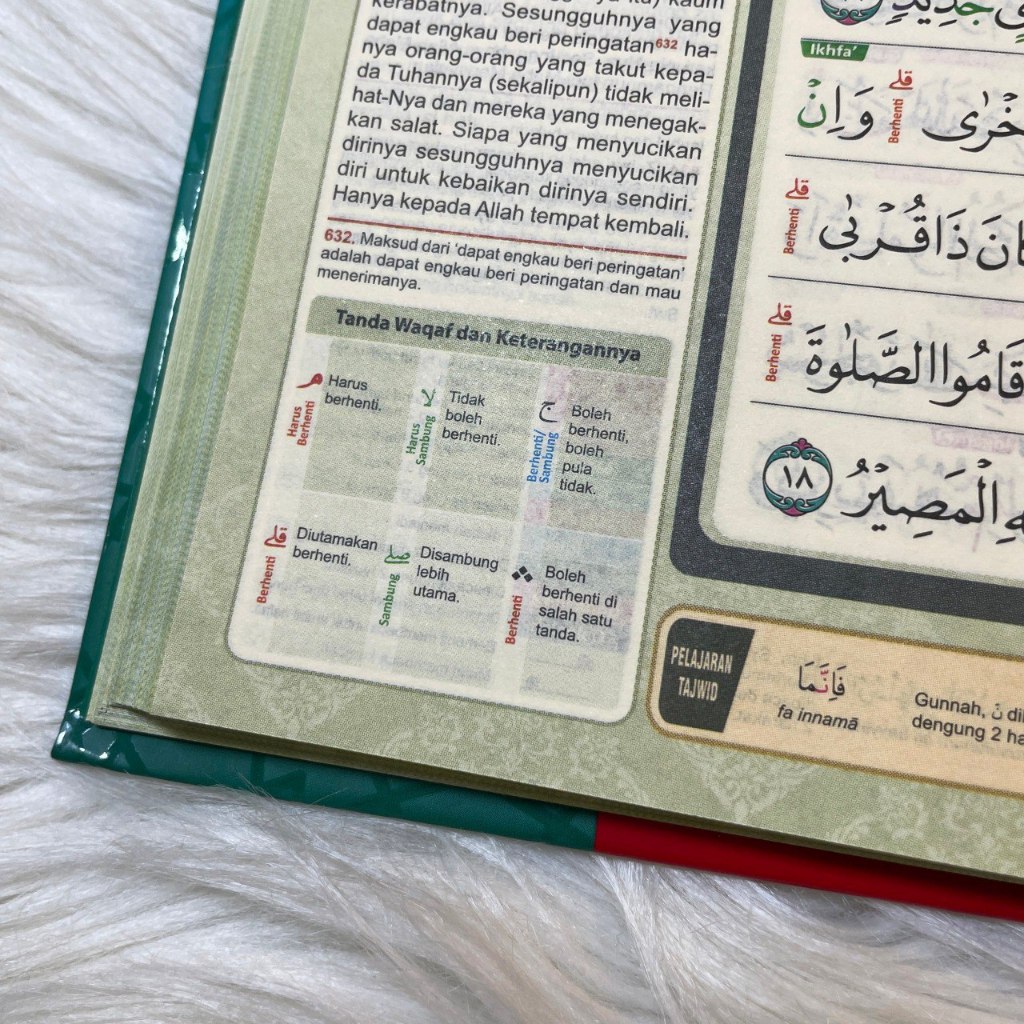 kerabatnya. Sesungguhnya yang
dapat engkau beri peringatan632 ha-
nya orang-orang yang takut kepa-
da Tuhannya (sekalipun) tidak meli-
hat-Nya dan mereka yang menegak-
kan salat. Siapa yang menyucikan
dirinya sesungguhnya menyucikan
diri untuk kebaikan dirinya sendiri.
Hanya kepada Allah tempat kembali.
632. Maksud dari ‘dapat engkau beri peringatan’
adalah dapat engkau beri peringatan dan mau
menerimanya.
Tanda Waqaf dan Keterangannya
م
Harus
Berhenti
Harus
berhenti.
لا
Harus
Sambung
Tidak
boleh
berhenti.
ج
Berhenti/
Sambung
Boleh
berhenti,
boleh
pula
tidak.
قلى
Berhenti
Diutamakan
berhenti.
صلى
Sambung
Disambung
lebih
utama.
Berhenti
Boleh
berhenti di
salah satu
tanda.
Ikhfa’
قلى
Berhenti
وَاِنْ
قلى
Berhenti
ذَا قُرْبٰى
قلى
Berhenti
الصَّلٰوةَ
الْمَصِيْرُ
١٨
PELAJARAN
TAJWID
فَاِنَّمَا
fa innamā
Gunnah, نّ
dengung 2